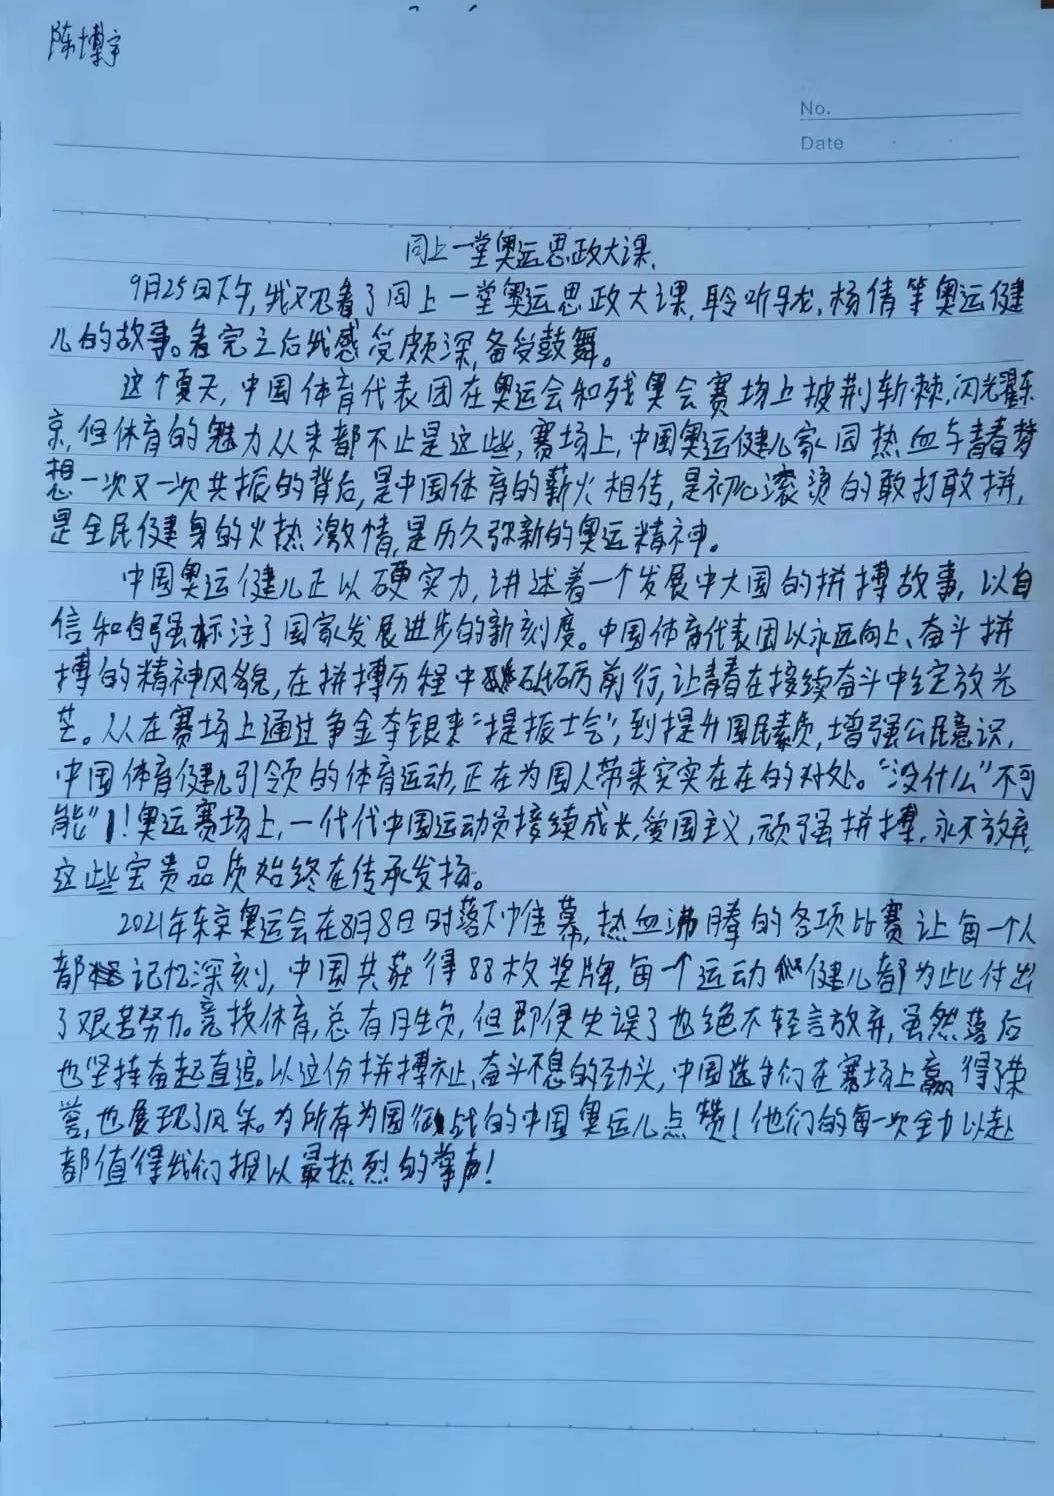 陈博宇
No.
Date
同上一堂奥运思政大课.
9月25日下午,我观看了同上一堂奥运思政大课,聆听马龙,杨倩等奥运健
儿的故事。看完之后我感受颇深,备受鼓舞。
这个夏天,中国体育代表团在奥运会和残奥会赛场上披荆斩棘,闪光耀东
京,但体育的魅力从来都不止是这些,赛场上,中国奥运健儿家园热血与青春梦
想一次又一次共振的背后,是中国体育的薪火相传,是初心滚烫的敢打敢拼,
是全民健身的火热激情,是历久弥新的奥运精神。
中国奥运健儿正以硬实力,讲述着一个发展中大国的拼搏故事,以自
信和自强标注了国家发展进步的新刻度。中国体育代表团以永远向上、奋斗拼
搏的精神风貌,在拼搏历程中砥砺前行,让青春在接续奋斗中绽放光
芒。从在赛场上通过争金夺银来“提振士气”,到提升国民素质,增强公民意识,
中国体育健儿引领的体育运动,正在为国人带来实实在在的好处。“没什么”不可
能”!奥运赛场上,一代代中国运动员接续成长,爱国主义,顽强拼搏,永不放弃,
这些宝贵品质始终在传承发扬。
2021年东京奥运会在8月8日时落下帷幕,热血沸腾的各项比赛让每一个人
都记忆深刻,中国共获得88枚奖牌,每一个运动健儿都为此付出
了艰苦努力。竞技体育,总有胜负,但即便失误了也绝不轻言放弃,虽然落后
也坚持奋起直追。以这份拼搏不止,奋斗不息的劲头,中国选手们在赛场上赢得了荣
誉,也展现了风采。为所有为国征战的中国奥运儿点赞!他们的每一次全力以赴
都值得我们报以最热烈的掌声!